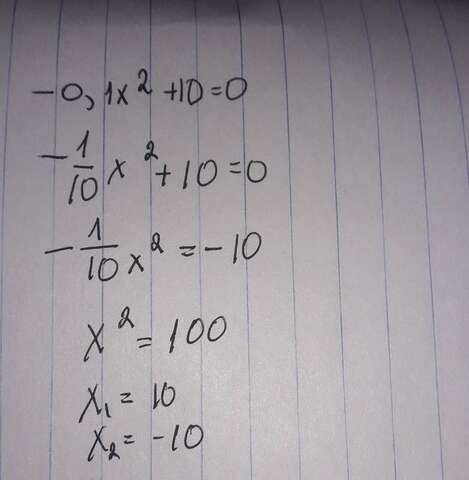 -0,1x² +10=0
-1/10 x² + 10 = 0
-1/10 x² = -10
x² = 100
x₁ = 10
x₂ = -10